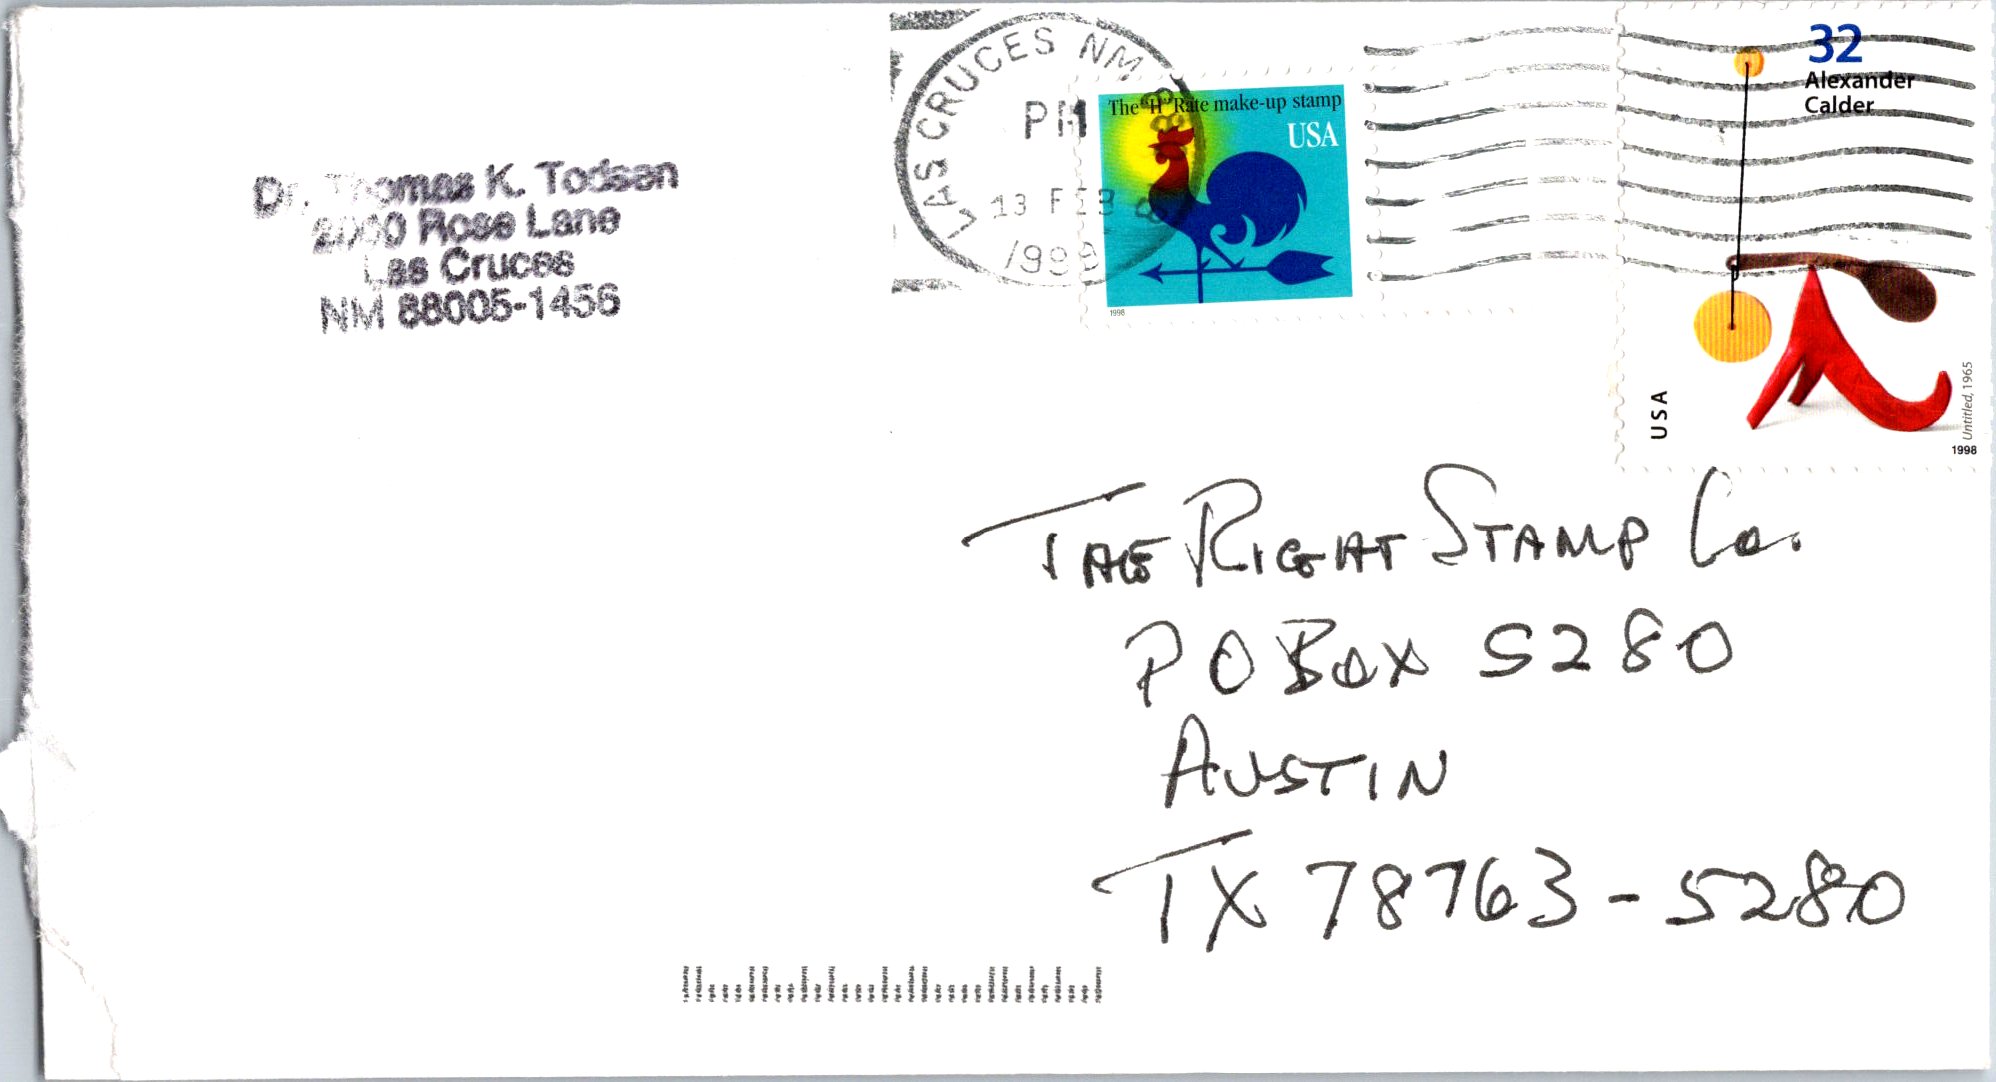 Dr. Thomas K. Todsen
2000 Rose Lane
Las Cruces
NM 88005-1456
LAS CRUCES NM
PM
13 FEB
1999
The "H" Rate make-up stamp
USA
1998
32
Alexander
Calder
USA
Untitled, 1965
1998
THE RIGHT STAMP Co.
PO BOX 5280
AUSTIN
TX 78763-5280